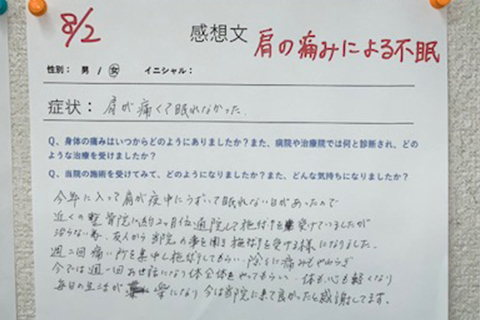 8/2
感想文 肩の痛みによる不眠
性別: 男 / 女 イニシャル:
症状: 肩が痛くて眠れなかった.
Q、身体の痛みはいつからどのようにありましたか？また、病院や治療院では何と診断され、どの
ような治療を受けましたか？
Q、当院の施術を受けてみて、どのようになりましたか？また、どんな気持ちになりましたか？
今年に入って肩が夜中にうずいて眠れない日があったので
近くの整骨院に約2ヶ月位通院して施術を受けていましたが
治らない為、友人から当院の事を聞き施術を受ける様になりました。
週二回痛い所を集中し施術してもらい、除々に痛みもやわらぎ
今では週一回お世話になり体全体をやってもらい、体も心も軽くなり
毎日の生活が楽になり今は当院に来て良かったと感謝してます。